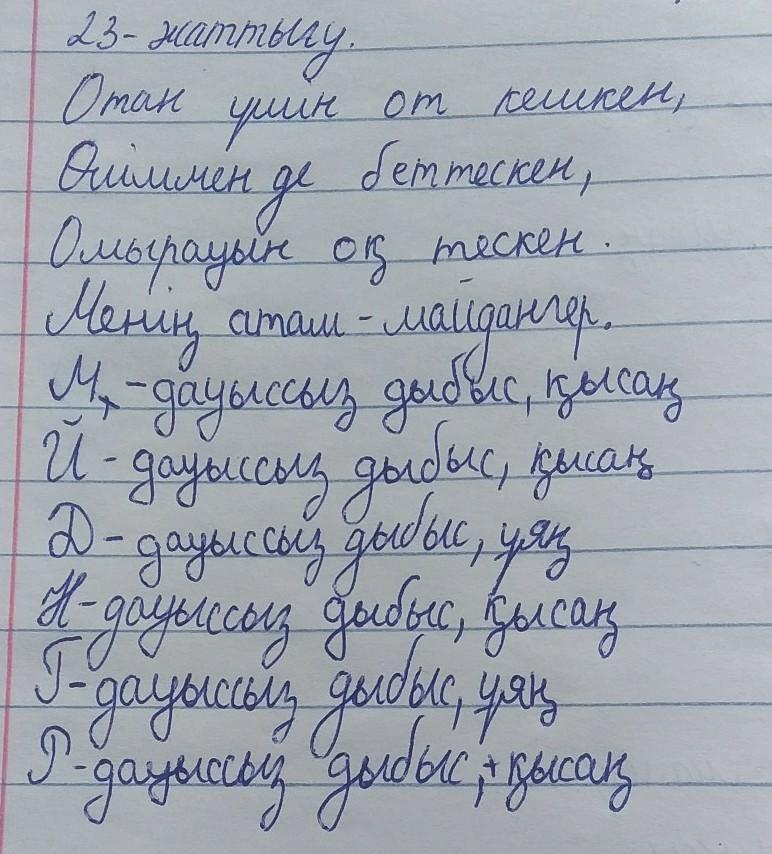 23-жаттыгу.
Отан үшін от кешкен,
Өліммен де беттескен,
Омырауын оқ тескен.
Менің атам - майдангер.
М, - дауыссыз дыбыс, қысаң
Й - дауыссыз дыбыс, қысаң
Д - дауыссыз дыбыс, ұяң
Н - дауыссыз дыбыс, қысаң
Г - дауыссыз дыбыс, ұяң
Р - дауыссыз дыбыс, қысаң